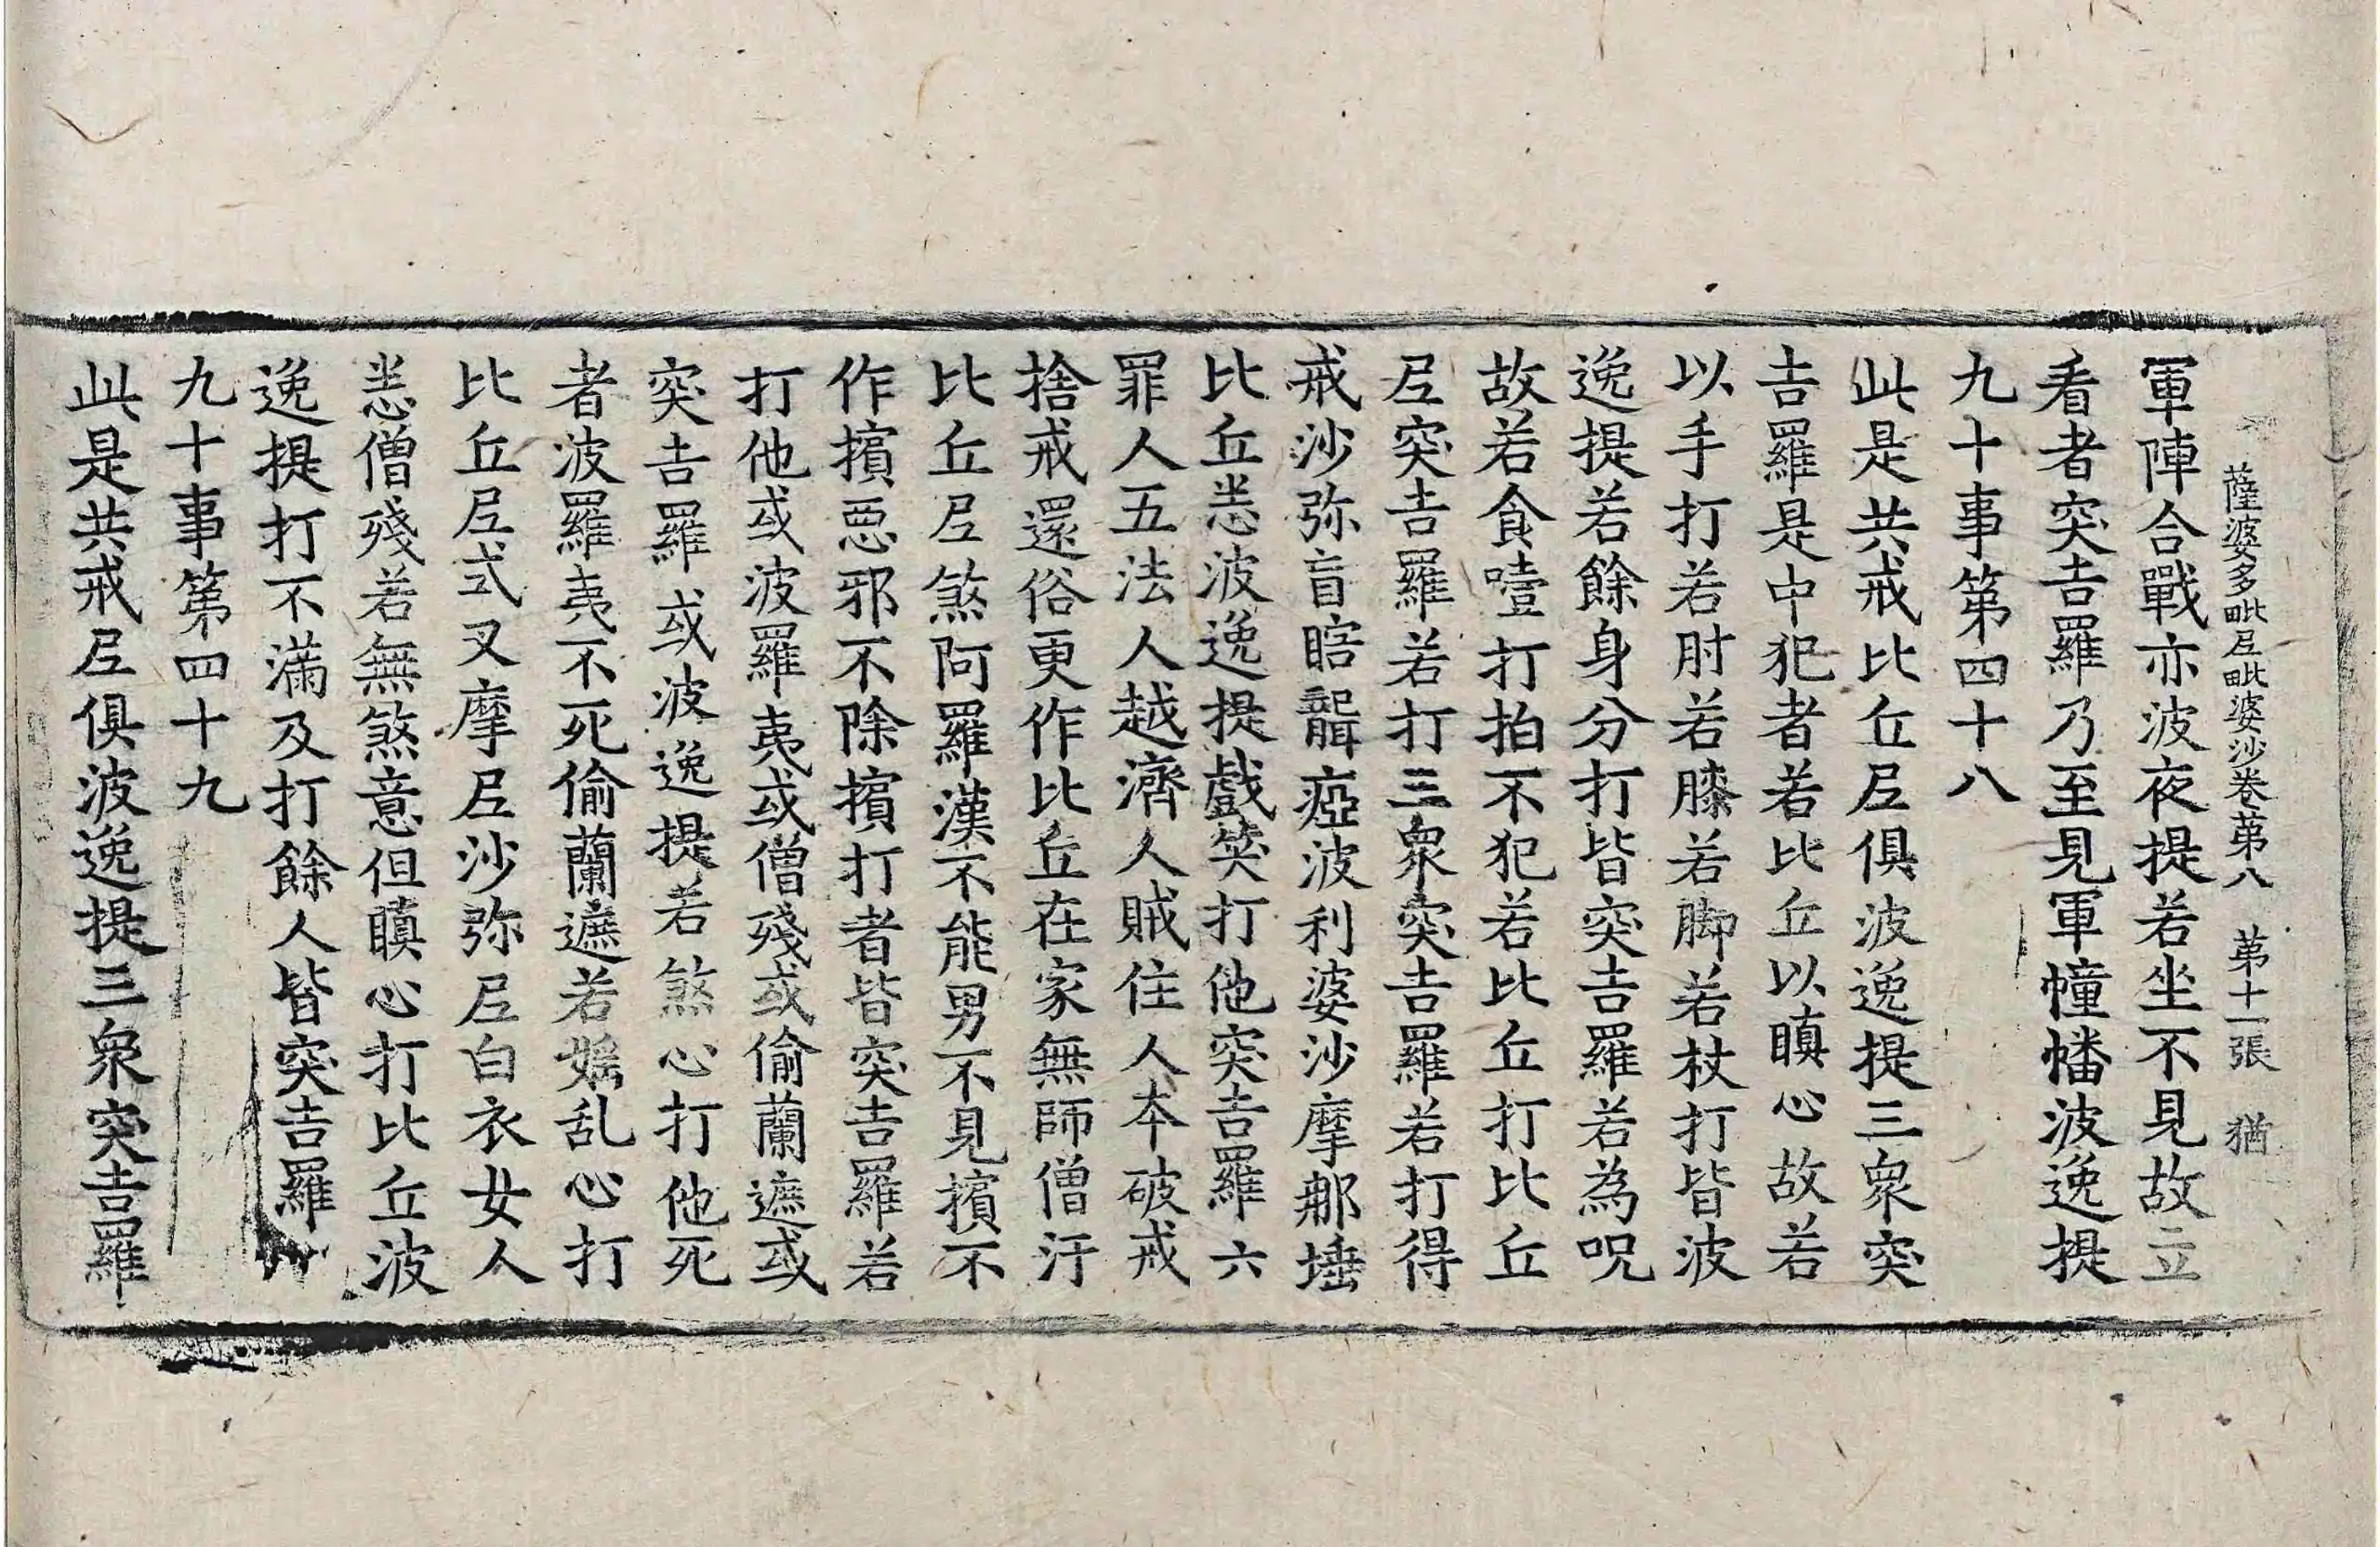 薩婆多毗尼毗婆沙卷第八 第十一張 猶
軍陣合戰亦波夜提若坐不見故立
看者突吉羅乃至見軍幢幡波逸提
九十事第四十八
此是共戒比丘尼俱波逸提三衆突
吉羅是中犯者若比丘以瞋心故若
以手打若肘若膝若脚若杖打皆波
逸提若餘身分打皆突吉羅若為呪
故若食噎打拍不犯若比丘打比丘
尼突吉羅若打三衆突吉羅若打得
戒沙弥盲瞎聾瘂波利婆沙摩那埵
比丘恙波逸提戲笑打他突吉羅六
罪人五法人越濟人賊住人本破戒
捨戒還俗更作比丘在家無師僧汙
比丘尼煞阿羅漢不能男不見擯不
作擯惡邪不除擯打者皆突吉羅若
打他或波羅夷或僧殘或偷蘭遮或
突吉羅或波逸提若煞心打他死
者波羅夷不死偷蘭遮若婬乱心打
比丘尼式叉摩尼沙弥尼白衣女人
恙僧殘若無煞意但瞋心打比丘波
逸提打不滿及打餘人皆突吉羅
九十事第四十九
此是共戒尼俱波逸提三衆突吉羅